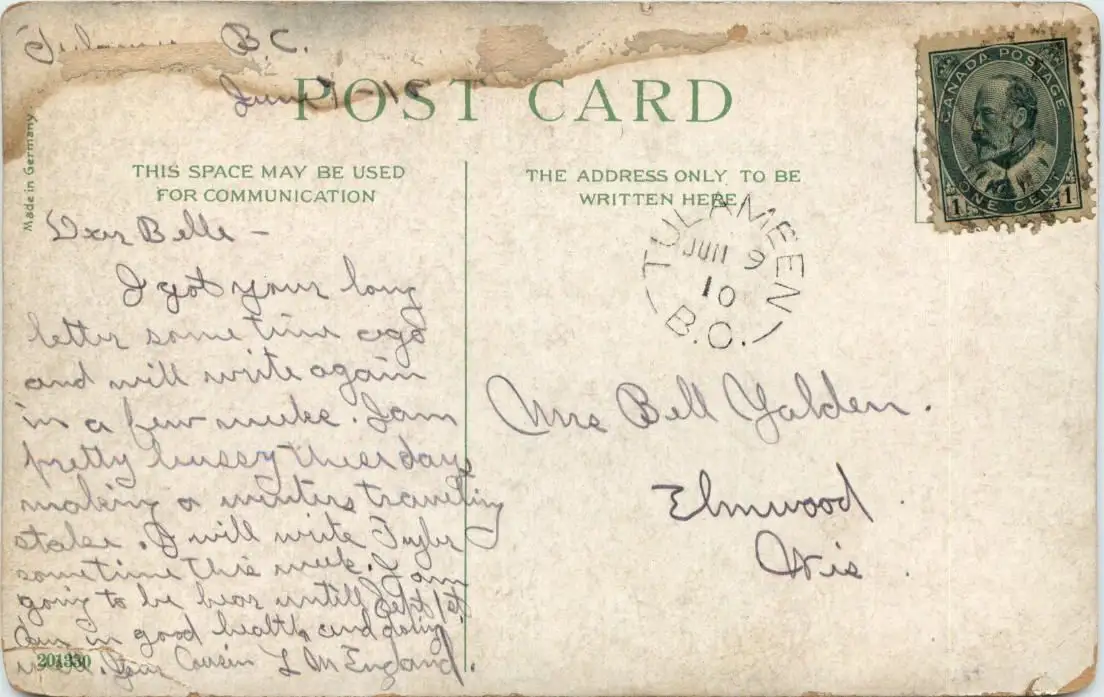 Tulameen B.C.
June 7 - 10
POST CARD
Made in Germany
THIS SPACE MAY BE USED
FOR COMMUNICATION
THE ADDRESS ONLY TO BE
WRITTEN HERE
CANADA POSTAGE
1 ONE CENT 1
TULAMEEN
JUN 9
10
B.C.
Dear Belle -
I got your long
letter some time ago
and will write again
in a few weeks. I am
pretty bussy these days
making a winters traveling
stake. I will write Tuyler
sometime this week. I am
going to be hear untill Sept 1st
Am in good health and doing
well. Your Cousin L M England.
201330
Mrs Bell Yalden.
Elmwood
Wis